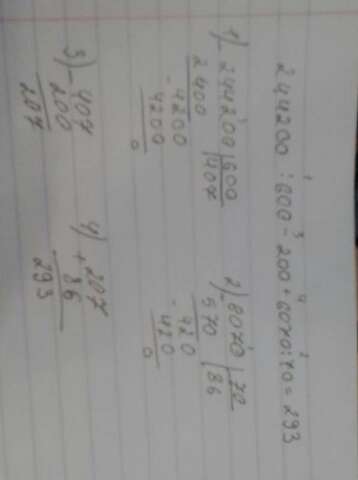 1 3 4 2
244200 : 600 - 200 + 6020 : 70 = 293
1) - 244200 | 600
2400 | 407
- 4200
4200
0
2) - 6020 | 70
560 | 86
- 420
420
0
3) - 407
200
207
4) + 207
86
293